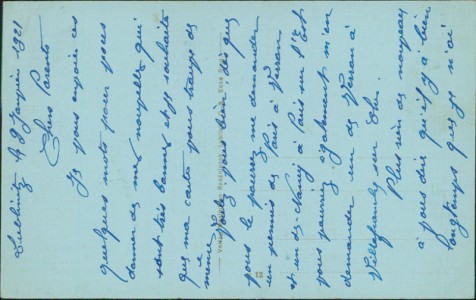 le 9 Janvier 1921
Chers Parents
Je vous envoie ces
quelques mots pour vous
donner de mes nouvelles qui
sont très bonnes et je souhaite
que ma carte vous trouve de
même Voulez vous bien dès que
vous le pourrez me demander
un permis de Paris à
et un de Nancy à Paris sur l'Est
vous pourriez également m'en
demander un de Vierzon à
Villefranche sur Cher
Plus rien de nouveau
à vous dire qu'il y a bien
longtemps que je n'ai